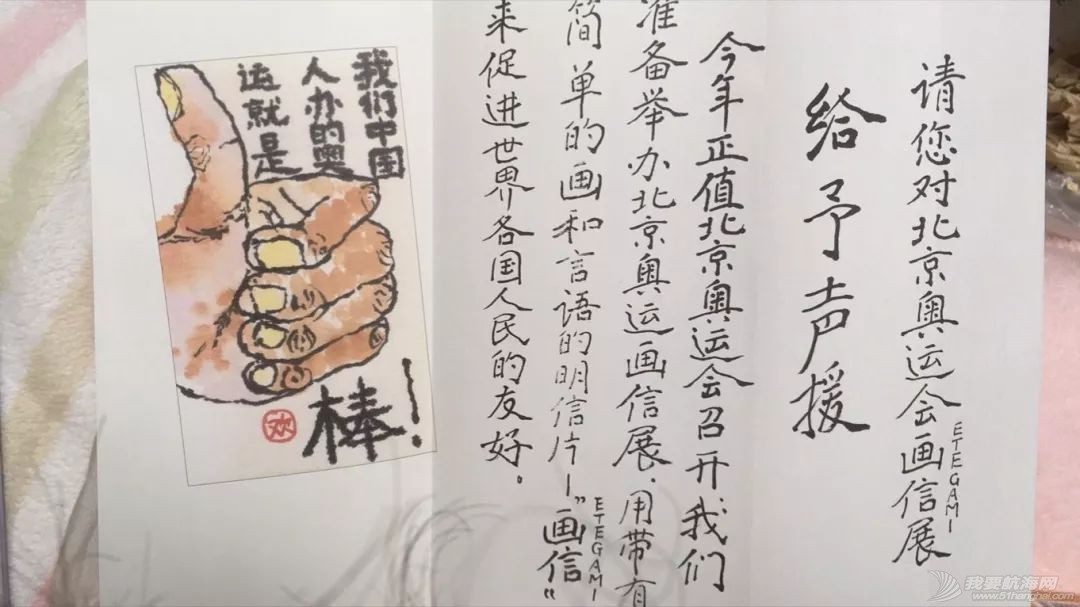 请您对北京奥运会画信展
ETEGAMI
给予声援
今年正值北京奥运会召开我们
准备举办北京奥运画信展、用带有
简单的画和言语的明信片—"画信"
ETEGAMI
来促进世界各国人民的友好。
我们中国
人办的奥
运就是
棒!
欢
我要航海网
www.51hanghai.com